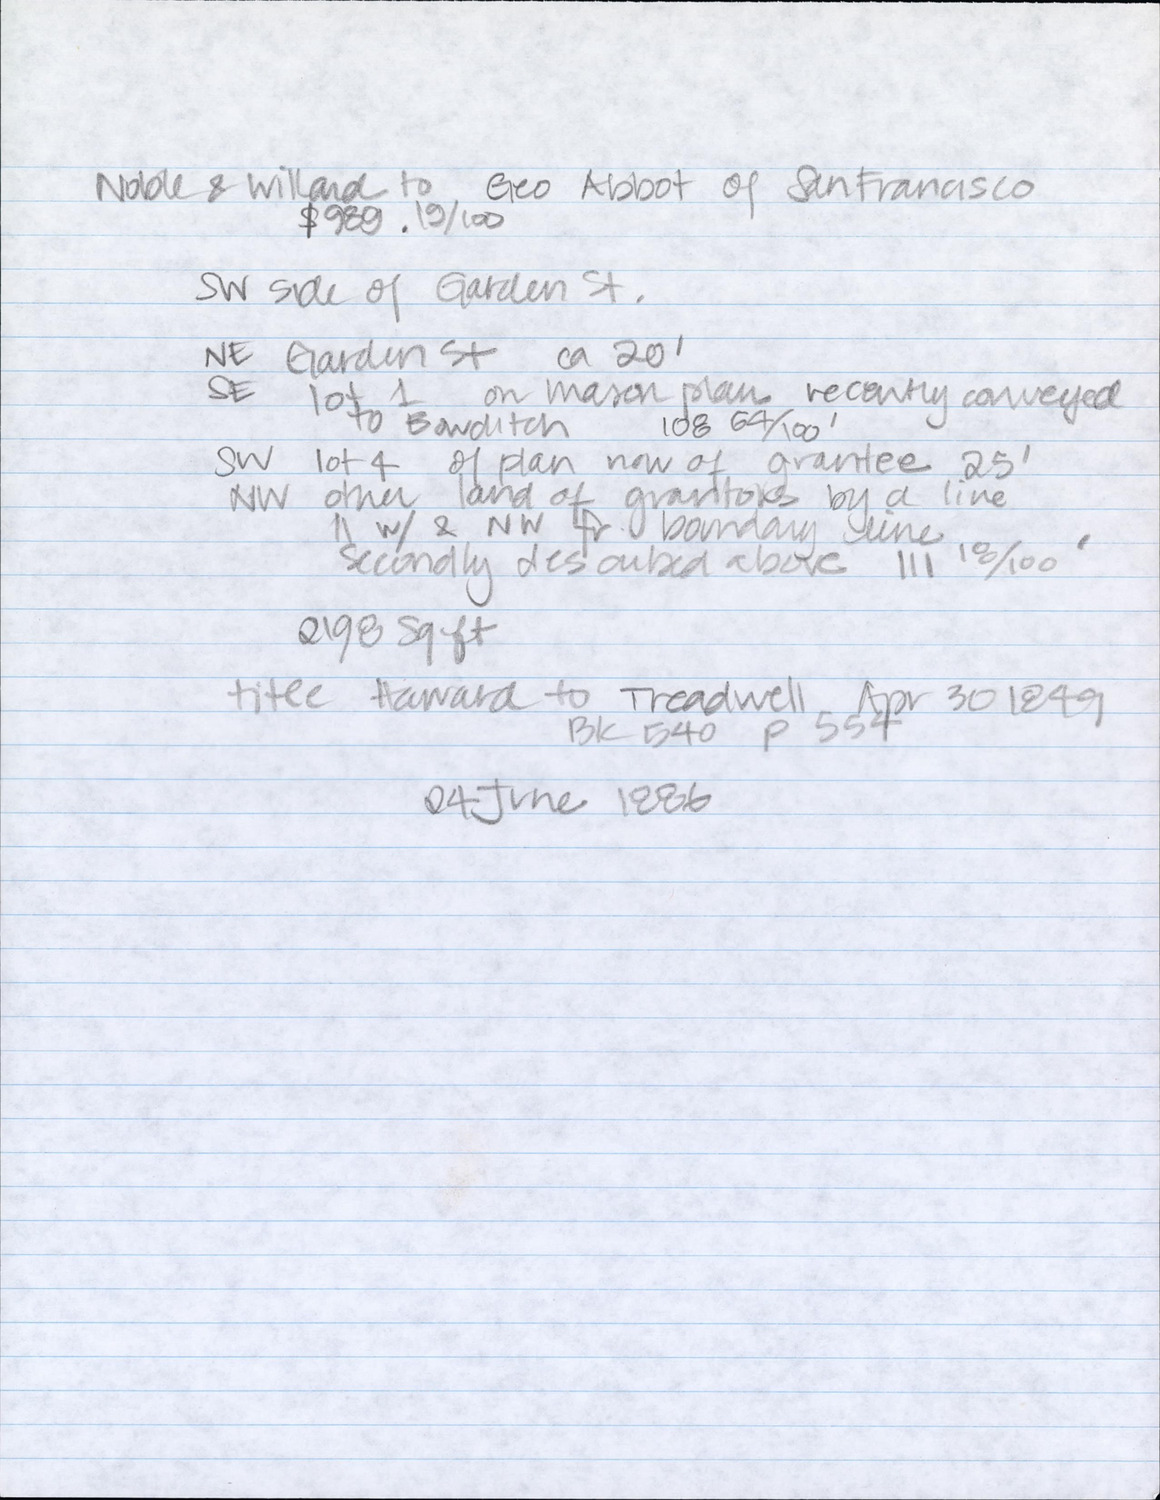 Noble & Willard to Geo Abbot of San Francisco
$989.19/100
SW side of Garden St.
NE Garden St ca 20'
SE lot 1 on Mason plan recently conveyed
to Bowditch 108 64/100'
SW lot 4 of plan now of grantee 25'
NW other land of grantors by a line
|| w/ & NW fr boundary line
secondly described above 111 18/100'
2198 sq ft
title Harvard to Treadwell Apr 30 1849
Bk 540 p 554
24 June 1886